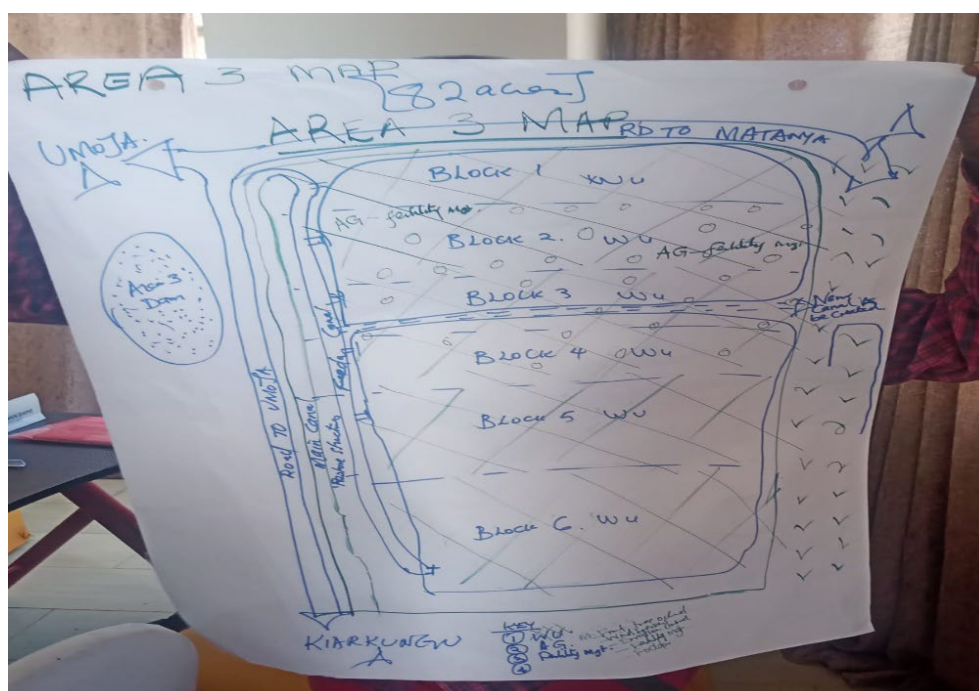 AREA 3 MAP
[82 acres]
AREA 3 MAP
RD TO MATANYA
UMOJA.
BLOCK 1 XWU
AG-fertility mgt.
BLOCK 2. WU
AG-fertility mgt
Area 3
Dam
BLOCK 3 WU
New
Canal to
be created
BLOCK 4 WU
BLOCK 5 WU
BLOCK 6. WU
ROAD TO UMOJA
Main Canal
Feeding Canal
KIARKUNGU
KEY
1 WU
2 AG
3 Fertility Mgt.
4